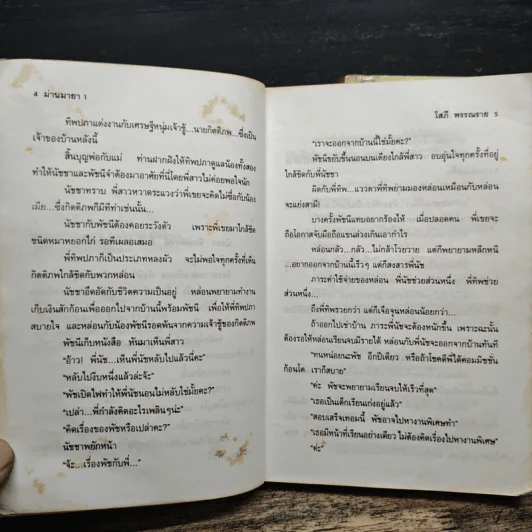 4 ม่านมายา 1
ทิพปภาแต่งงานกับเศรษฐีหนุ่มเจ้าชู้...นายกิตติภพ...ซึ่งเป็น
เจ้าของบ้านหลังนี้
สิ้นบุญพ่อกับแม่ ท่านฝากฝังให้ทิพปภาดูแลน้องทั้งสอง
ทำให้นัชชาและพัชนีจำต้องมาอาศัยที่นี่โดยพี่สาวไม่ค่อยพอใจนัก
นัชชาทราบ พี่สาวหวาดระแวงว่าพี่เขยจะคิดไม่ซื่อกับน้อง
เมีย...ซึ่งกิตติภพก็มีทีท่าเช่นนั้น...
นัชชากับพัชนีต้องคอยระวังตัว เพราะพี่เขยมาใกล้ชิด
ชนิดหมาหยอกไก่ รอทีเผลอเสมอ
พี่ทิพปภาก็เป็นประเภทหลงผัว จะไม่พอใจทุกครั้งที่เห็น
กิตติภพใกล้ชิดกับพวกหล่อน
นัชชาอึดอัดกับชีวิตความเป็นอยู่ หล่อนพยายามทำงาน
เก็บเงินสักก้อนเพื่อออกไปจากบ้านนี้พร้อมพัชนี เพื่อให้พี่ทิพปภา
สบายใจ และหล่อนกับน้องพัชนีรอดพ้นจากความเจ้าชู้ของกิตติภพ
พัชนีเก็บหนังสือ หันมาเห็นพี่สาว
"อ้าว! พี่นัช...เห็นพี่นัชหลับไปแล้วนี่คะ"
"หลับไปงีบหนึ่งแล้วล่ะจ้ะ"
"พัชเปิดไฟทำให้พี่นัชนอนไม่หลับใช่มั้ยคะ?"
"เปล่า...พี่กำลังคิดอะไรเพลินๆน่ะ"
"คิดเรื่องของพัชหรือเปล่าคะ?"
นัชชาพยักหน้า
"จ้ะ...เรื่องพัชกับพี่..."
โสภี พรรณราย 5
"เราจะออกจากบ้านนี้ใช่มั้ยคะ?"
พัชนีขยับขึ้นนอนบนเตียงใกล้พี่สาว อบอุ่นใจทุกครั้งที่อยู่
ใกล้ชิดกับพี่นัชชา
ผิดกับพี่ทิพ...แววตาพี่ทิพยามมองหล่อนเหมือนกับหล่อน
จะแย่งสามี!
บางครั้งพัชนีแทบอยากร้องไห้ เมื่อปลอดคน พี่เขยจะ
ถือโอกาสจับมือถือแขนล่วงเกินเอากำไร
หล่อนกลัว...กลัว...ไม่กล้าโวยวาย แต่ก็พยายามหลีกหนี
...อยากออกจากบ้านนี้เร็วๆ แต่ก็สงสารพี่นัช
ภาระค่าใช้จ่ายของหล่อน พี่นัชช่วยส่วนหนึ่ง พี่ทิพช่วย
ส่วนหนึ่ง...
ถึงพี่ทิพรวยมาก แต่ก็เจือจุนหล่อนน้อยกว่า...
ถ้าออกไปเช่าบ้าน ภาระพี่นัชจะต้องหนักขึ้น เพราะฉะนั้น
ต้องรอให้หล่อนเรียนจบมีรายได้ หล่อนกับพี่นัชจะออกจากบ้านทันที
"ทนหน่อยนะพัช อีกปีเดียว หรือถ้าโชคดีพี่ได้คอมมิชชั่น
ก้อนโต เราก็สบาย"
"ค่ะ พัชจะพยายามเรียนจบให้เร็วที่สุด"
"เธอเป็นเด็กเรียนเก่งอยู่แล้ว"
"สอบเสร็จเทอมนี้ พัชอาจไปหางานพิเศษทำ"
"เธอมีหน้าที่เรียนอย่างเดียว ไม่ต้องคิดเรื่องไปหางานพิเศษ"
"ค่ะ"